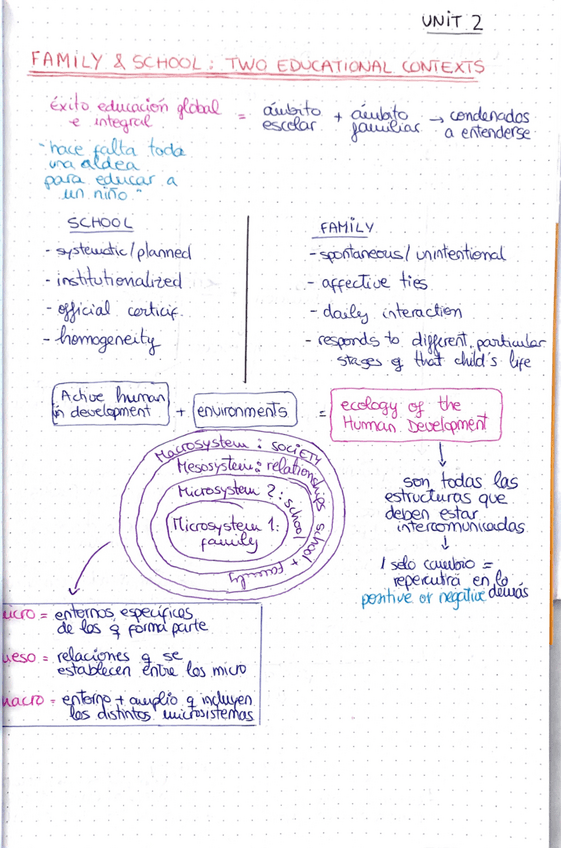 UNIT 2
FAMILY & SCHOOL: TWO EDUCATIONAL CONTEXTS
éxito educación global
e integral
= ámbito escolar + ámbito familiar → condenados a entenderse
"hace falta toda
una aldea
para educar a
un niño"
SCHOOL
- systematic/planned
- institutionalized
- official certicif.
- homogeneity
FAMILY
- spontaneous/unintentional
- affective ties
- daily interaction
- responds to different, particular
stages of that child's life
Active human
in development
+ environments
= ecology of the
Human Development
Macrosystem: SOCIETY
Mesosystem: relationships school + family
Microsystem 2: school
Microsystem 1:
family
↓
son todas las
estructuras que
deben estar
intercomunicadas
↓
1 solo cambio =
repercutirá en lo
demás
positive or negative
icro = entornos específicos
de los q forma parte
eso = relaciones q se
establecen entre los micro
macro = entorno + amplio q incluyen
los distintos microsistemas